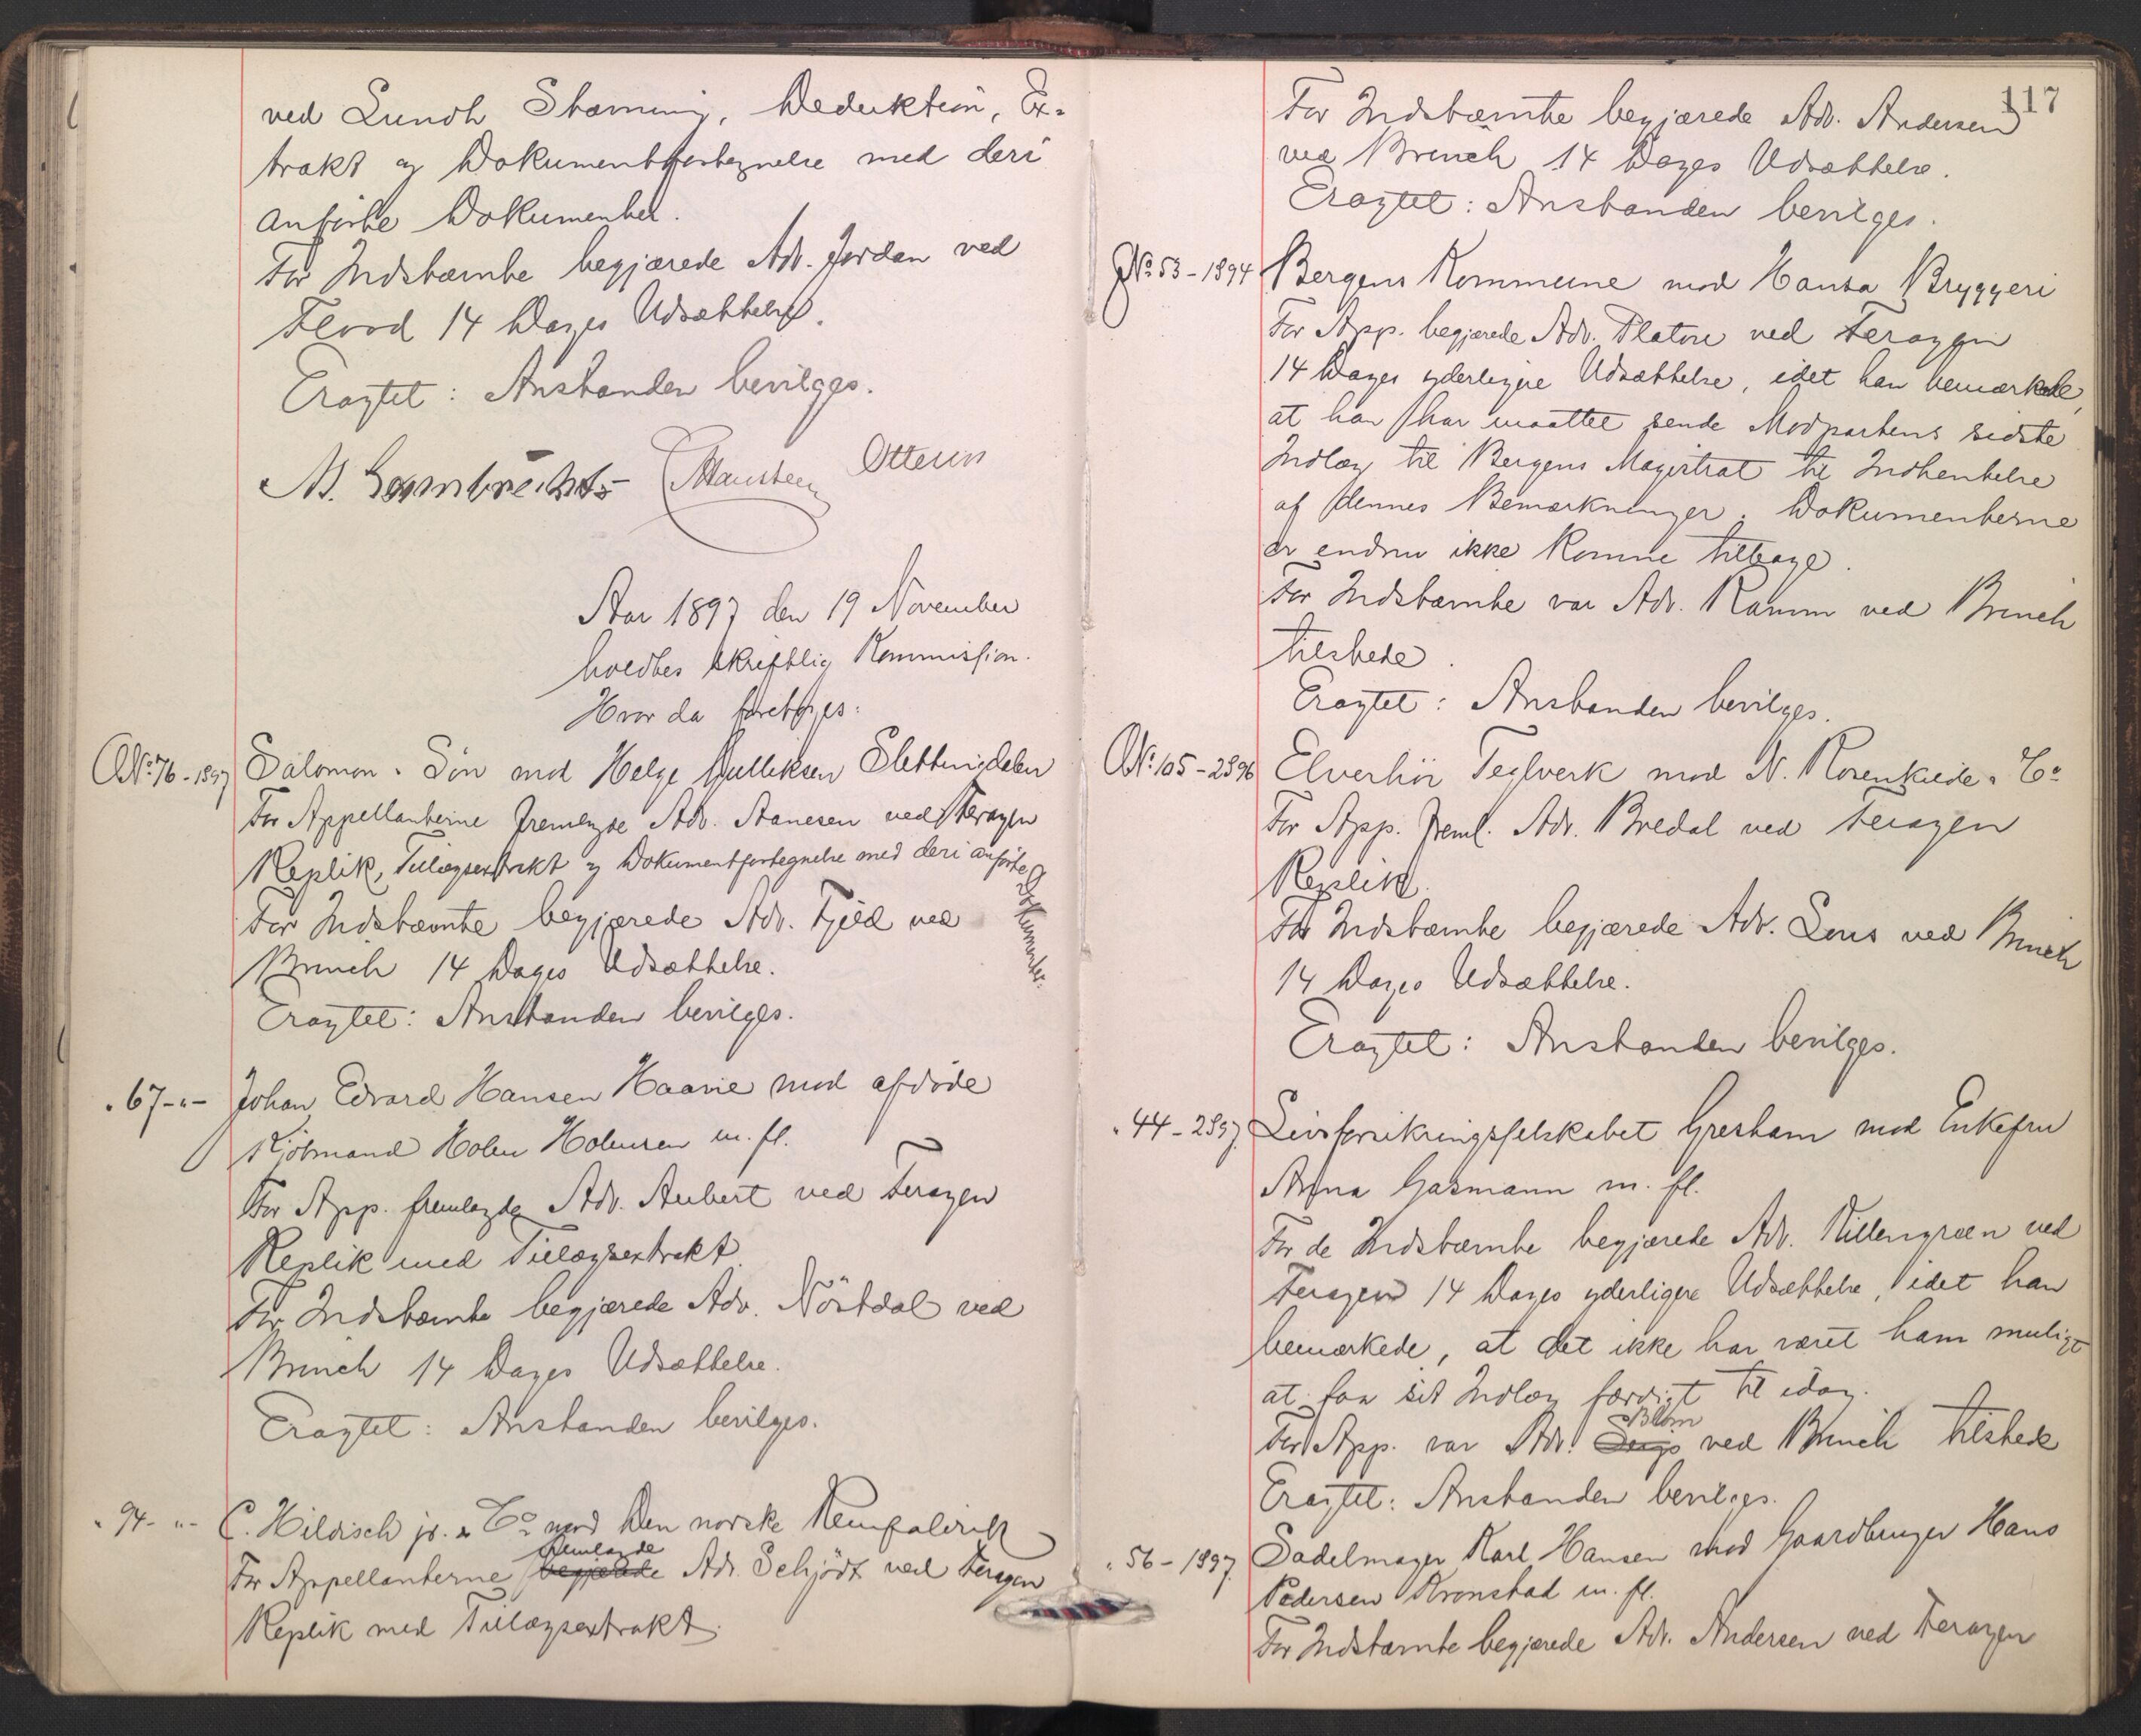 ved Lundh Stævning, Deduktion, Ex-
trakt og Dokumentfortegnelse med deri
anførte Dokumenter.
For Indstævnte begjærede Adv. Jordan ved
Flood 14 Dages Udsættelse.
Eragtet: Anstanden bevilges.
M. Lambrechts Hansteen Ottesen
Aar 1897 den 19 November
holdtes skriftlig Kommission.
Hvor da foretoges:
No. 76-1897 Salomon & Søn mod Helge Gulliksen Slettemidalen
For Appellanterne fremlagde Adv. Aanesen ved Feragen
Replik, Tillægsextrakt og Dokumentfortegnelse med deri anførte Dokumenter.
For Indstævnte begjærede Adv. Fjeld ved
Brinch 14 Dages Udsættelse.
Eragtet: Anstanden bevilges.
" 67-"- Johan Edvard Hansen Haavie mod afdøde
Kjøbmand Holm Holmsen m. fl.
For App. fremlagde Adv. Aubert ved Feragen
Replik med Tillægsextrakt.
For Indstævnte begjærede Adv. Nöstdal ved
Brinch 14 Dages Udsættelse.
Eragtet: Anstanden bevilges.
" 94-"- C. Hildisch jr. & Co. mod Den norske Remfabrik
For Appellanterne begjærede fremlagde Adv. Schjödt ved Feragen
Replik med Tillægsextrakt.
117
For Indstævnte begjærede Adv. Andersen
ved Brinch 14 Dages Udsættelse.
Eragtet: Anstanden bevilges.
No. 53-1894 Bergens Kommune mod Hansa Bryggeri
For App. begjærede Adv. Platou ved Feragen
14 Dages yderligere Udsættelse, idet han bemærkede,
at han har maattet sende Modpartens sidste
Indlæg til Bergens Magistrat til Indhentelse
af dennes Bemærkninger. Dokumenterne
er endnu ikke komne tilbage.
For Indstævnte var Adv. Ramm ved Brinch
tilstede.
Eragtet: Anstanden bevilges.
No. 105-1896 Elverhöi Teglverk mod N. Rosenkilde & Co.
For App. freml. Adv. Bredal ved Feragen
Replik.
For Indstævnte begjærede Adv. Lous ved Brinch
14 Dages Udsættelse.
Eragtet: Anstanden bevilges.
" 44-1897 Livsforsikringsselskabet Gresham mod Enkefru
Anna Gasmann m. fl.
For de Indstævnte begjærede Adv. Killengreen ved
Feragen 14 Dages yderligere Udsættelse, idet han
bemærkede, at det ikke har været ham muligt
at faa sit Indlæg færdigt til idag.
For App. var Adv. Blom ved Brinch tilstede
Eragtet: Anstanden bevilges.
" 56-1897 Sadelmager Karl Hansen mod Gaardbruger Hans
Pedersen Kronstad m. fl.
For Indstævnte begjærede Adv. Andersen ved Feragen